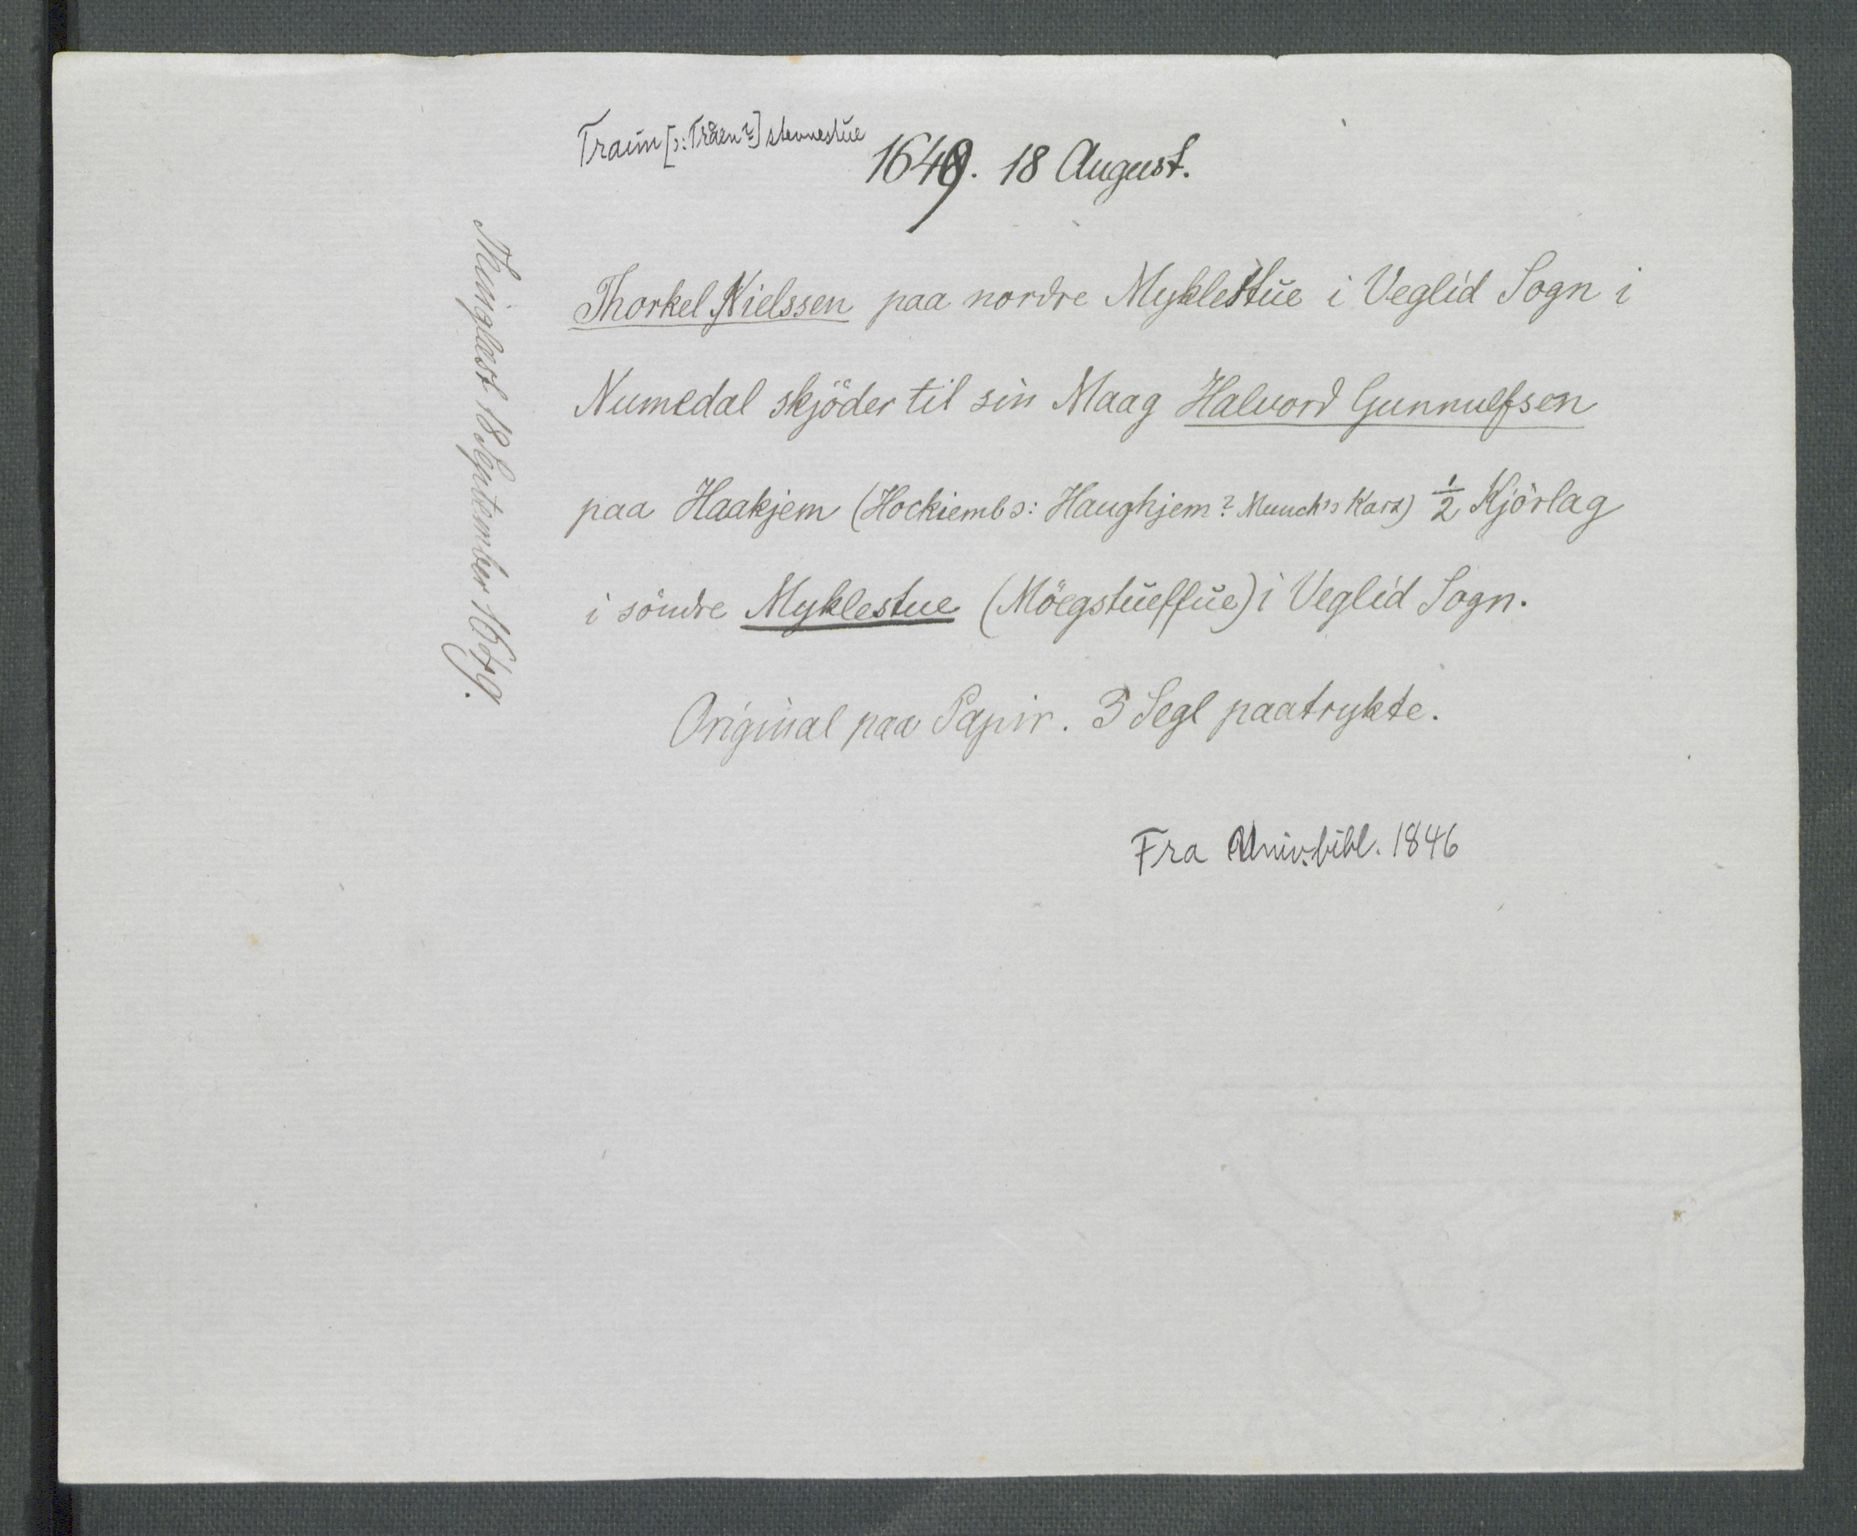 Traim [ɔ: Tråen?] stevnestue
1649. 18 August.
Thorkel Nielssen paa nordre Myklestŭe i Veglid Sogn i
Numedal skjöder til sin Maag Halvord Gunnulfsen
paa Haakjem (Hockiemb ɔ: Haughjem? Munch's Kart) ½ Kjörlag
i söndre Myklestue (Möegstŭeffŭe) i Veglid Sogn.
Original paa Papir. 3 Segl paatrykte.
Fra Univ.bibl. 1846
Thinglæst 18 September 1649.